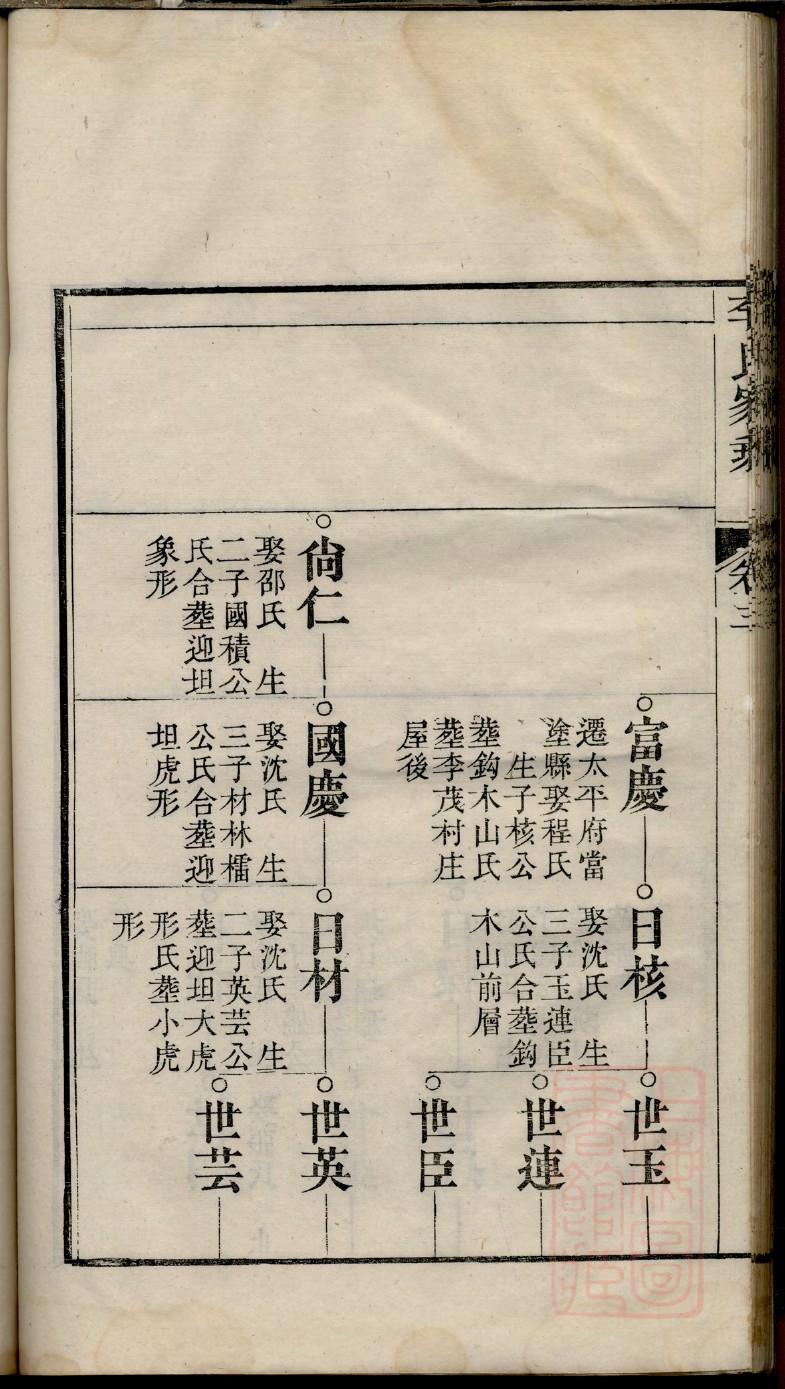 李氏家乘
卷三
富慶
遷太平府當
塗縣娶程氏
生子核公
塟鈎木山氏
塟李茂村庄
屋後
日核
娶沈氏 生
三子玉連臣
公氏合塟鈎
木山前層
世玉
世連
世臣
尙仁
娶邵氏 生
二子國積公
氏合塟迎坦
象形
國慶
娶沈氏 生
三子材林檑
公氏合塟迎
坦虎形
日材
娶沈氏 生
二子英芸公
塟迎坦大虎
形氏塟小虎
形
世英
世芸